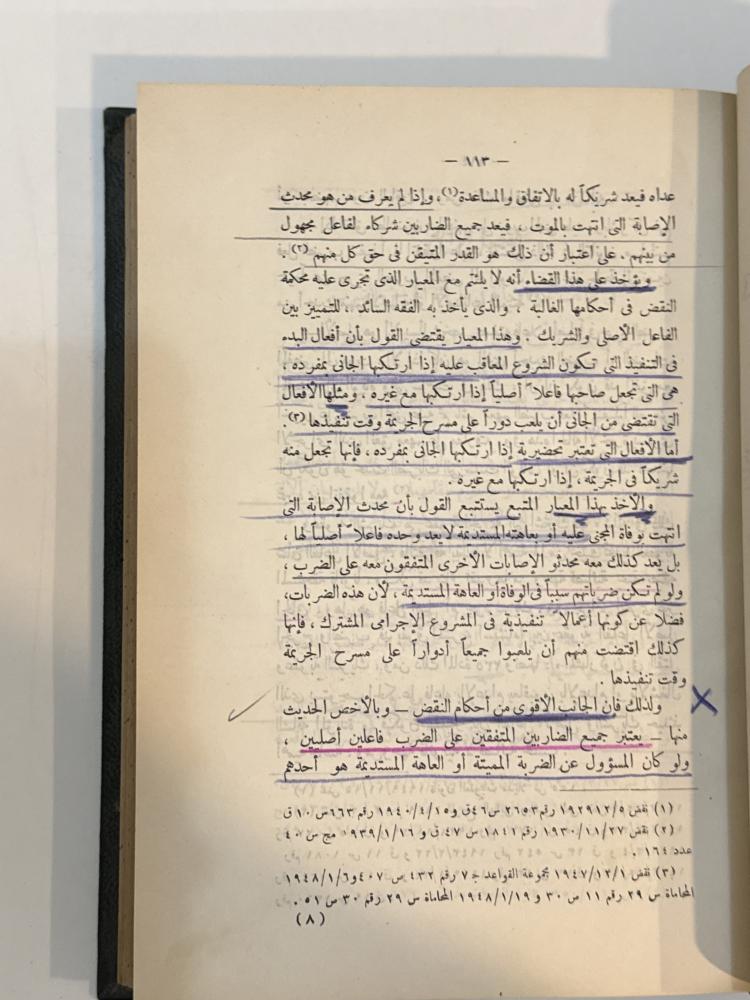 — ١١٣ —
عداه فيعد شريكاً له بالاتفاق والمساعدة(١)، وإذا لم يعرف من هو محدث
الإصابة التى انتهت بالموت ، فيعد جميع الضاربين شركاء لفاعل مجهول
من بينهم . على اعتبار أن ذلك هو القدر المتيقن فى حق كل منهم (٢) .
ويؤخذ على هذا القضاء أنه لا يلتئم مع المعيار الذى تجرى عليه محكمة
النقض فى أحكامها الغالبة ، والذى يأخذ به الفقه السائد ، للتمييز بين
الفاعل الأصلى والشريك . وهذا المعيار يقتضى القول بأن أفعال البدء
فى التنفيذ التى تكون الشروع المعاقب عليه إذا ارتكبها الجانى بمفرده ،
هى التى تجعل صاحبها فاعلاً أصلياً إذا ارتكبها مع غيره . ومثلها الأفعال
التى تقتضى من الجانى أن يلعب دوراً على مسرح الجريمة وقت تنفيذها (٣).
أما الأفعال التى تعتبر تحضيرية إذا ارتكبها الجانى بمفرده ، فإنها تجعل منه
شريكاً فى الجريمة ، إذا ارتكبها مع غيره .
والأخذ بهذا المعيار المتبع يستتبع القول بأن محدث الإصابة التى
انتهت بوفاة المجنى عليه أو بعاهته المستديمة لا يعد وحده فاعلاً أصلياً لها ،
بل يعد كذلك معه محدثو الإصابات الأخرى المتفقون معه على الضرب ،
ولو لم تكن ضرباتهم سبباً فى الوفاة أو العاهة المستديمة ، لأن هذه الضربات،
فضلا عن كونها أعمالاً تنفيذية فى المشروع الإجرامى المشترك ، فإنها
كذلك اقتضت منهم أن يلعبوا جميعاً أدواراً على مسرح الجريمة
وقت تنفيذها .
ولذلك فإن الجانب الأقوى من أحكام النقض — وبالأخص الحديث
منها — يعتبر جميع الضاربين المتفقين على الضرب فاعلين أصليين ،
ولو كان المسؤول عن الضربة المميتة أو العاهة المستديمة هو أحدهم
(١) نقض ١٩٢٩١٢/٥ رقم ٢٦٥٣ س ٤٦ق و ١٩٤٠/٤/١٥ رقم ٦٦٣ س ١٠ ق
(٢) نقض ١٩٣٠/١١/٢٧ رقم ١٨٤١ س ٤٧ ق و ٩٣٩/١/١٦ مج س ٤٠
عدد ١٦٤ .
(٣) نقض ١٩٤٧/١٢/١ مجموعة القواعد ج ٧ رقم ٤٣٢ ص ٤٠٧ و ١٩٤٨/١/٦
المحاماة س ٢٩ رقم ١١ ص ٣٠ و ١٩٤٨/١/١٩ المحاماة س ٢٩ رقم ٣٠ ص ٥١ .
(٨)